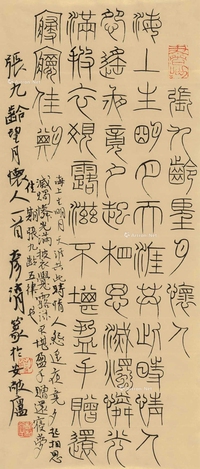 張九齡望月懷人
海上生明月天涯共此時情人
怨遙夜竟夕起相思滅燭憐光
滿披衣覺露滋不堪盈手贈還
寢夢佳期
海上生明月天涯共此時情人怨遙夜竟夕起相思
滅燭憐光滿披衣覺露滋不堪盈手贈還寢夢
佳期張九齡五律
張九齡望月懷人一首彥清篆於安敝廬